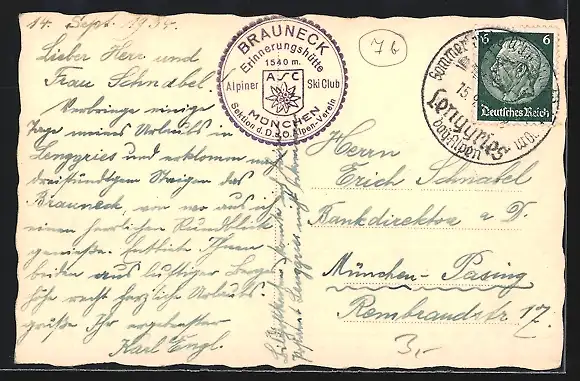 14. Sept. 1934.
Lieber Herr und
Frau Schnabel.
Verbringe einige
Tage meines Urlaubs in
Lenggries und erklomm nach
dreistündigem Steigen das
Brauneck, von wo aus ich
einen herrlichen Rundblick
genieße. Entbiete Ihnen
beiden aus luftiger Berges-
höhe recht herzliche Urlaubs-
grüße Ihr ergebenster
Karl Engl.
BRAUNECK
Erinnerungshütte
1540 m.
Alpiner ASC Ski Club
MÜNCHEN
Sektion d. D.&Ö. Alpen-Verein
76
6 6
Deutsches Reich
Sommer
15.
Lenggries
Herrn
Erich Schnabel
Bankdirektor a D.
München-Pasing
Rembrandstr 17.
3,-